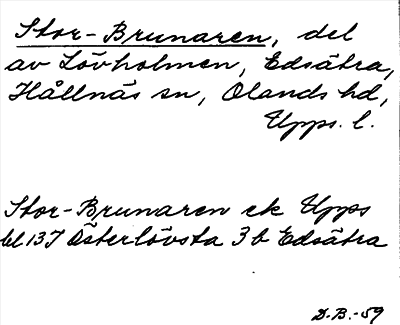 Stor-Brunaren, del
av Lövholmen, Edsätra,
Hållnäs sn, Olands hd,
Upps. l.
Stor-Brunaren ek Upps
bl 13J Österlövsta 3b Edsätra
D.B.-59